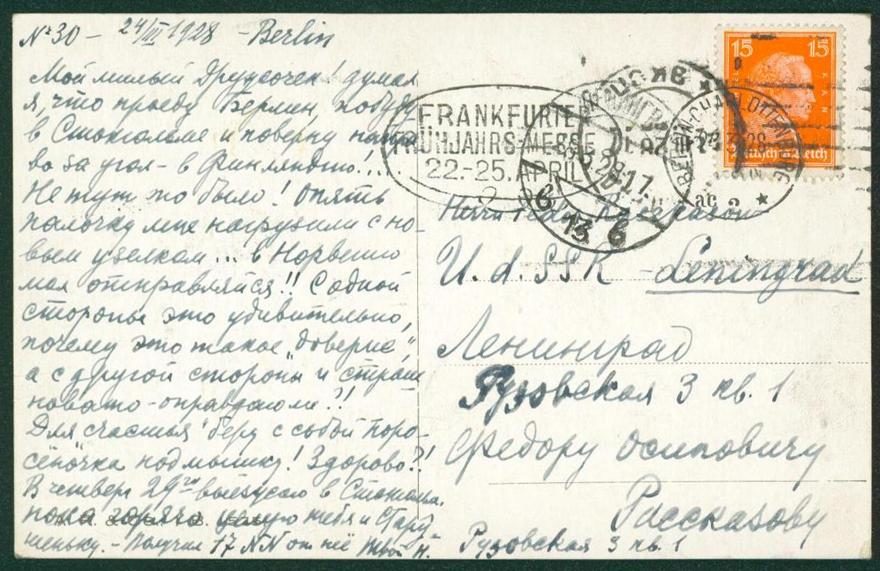 №30 – 24/III 1928 – Berlin
Мой милый Дружочек! думал
я, что проеду Берлин, побуду
в Стокгольме и поверну напра-
во за угол – в Финляндию!...
Не тут то было! Опять
палочку мне нагрузили с но-
вым узелком... в Норвегию
мол отправляйся!! С одной
стороны это удивительно,
почему это такое „доверие",
а с другой стороны и страш
новато – оправдаю ли?!!
Для „счастья" беру с собой поро-
сёночка подмышку! Здорово?!
В четверг 29го выезжаю в Стокгольм.
пока горячо целую тебя и Стару-
шеньку. – Получил 17 NN от неё Твой Н.
FRANKFURTER
FRÜHJAHRS-MESSE
22.-25. APRIL
BERLIN-CHARLOTTENBURG
15 15
Deutsches Reich
Herrn
U.d.SSR – Leningrad
Ленинград
Рузовская 3 кв. 1
Федору Осиповичу
Рассказову
Рузовская 3 кв. 1